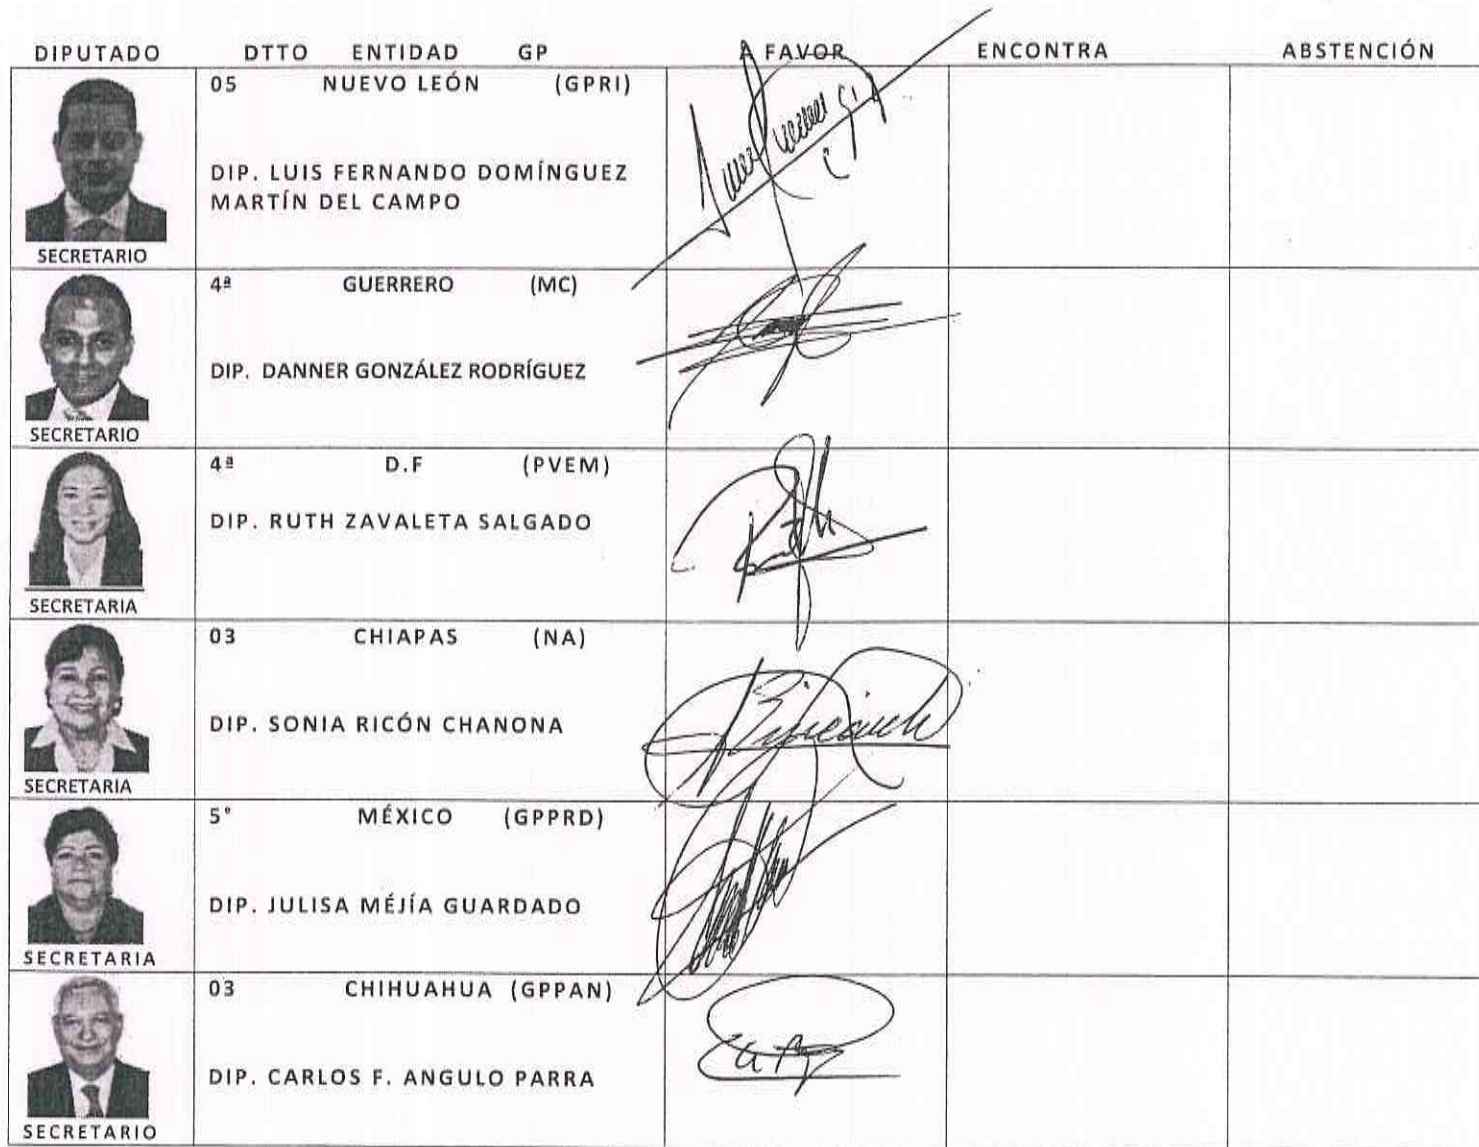 DIPUTADO DTTO ENTIDAD GP A FAVOR ENCONTRA ABSTENCIÓN
05 NUEVO LEÓN (GPRI)
DIP. LUIS FERNANDO DOMÍNGUEZ
MARTÍN DEL CAMPO
SECRETARIO
4ª GUERRERO (MC)
DIP. DANNER GONZÁLEZ RODRÍGUEZ
SECRETARIO
4ª D.F (PVEM)
DIP. RUTH ZAVALETA SALGADO
SECRETARIA
03 CHIAPAS (NA)
DIP. SONIA RICÓN CHANONA
SECRETARIA
5° MÉXICO (GPPRD)
DIP. JULISA MÉJÍA GUARDADO
SECRETARIA
03 CHIHUAHUA (GPPAN)
DIP. CARLOS F. ANGULO PARRA
SECRETARIO